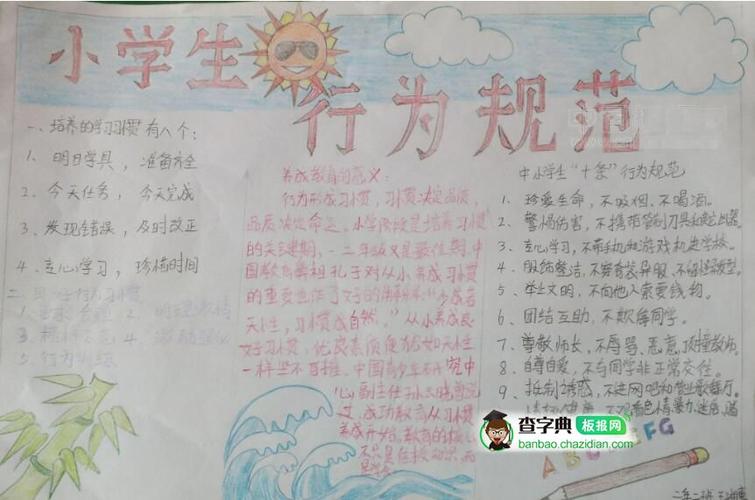 小学生
行为规范
一、培养的学习习惯有八个:
1、明日学具,准备齐全
2、今天任务,今天完成
3、发现错误,及时改正
4、专心学习,珍惜时间
养成教育的意义:
行为形成习惯,习惯决定品质,
品质决定命运。小学阶段是培养习惯
的关键期,一二年级又是最佳期。中
国教育鼻祖孔子对从小养成习惯
的重要也作了好的解释:“少成若
天性,习惯成自然。”从小养成良
好习惯,优良素质便犹如天性
一样坚不可摧。中国青少年研究中
心副主任孙云晓曾说
过,成功教育从习惯
养成开始。教育的核心
不只是传授知识,而
中小学生“十条”行为规范
1、珍爱生命,不吸烟、不喝酒。
2、警惕伤害,不携带管制刀具和
3、专心学习,不带手机和游戏机进学校。
4、服饰整洁,不穿奇装异服、不留怪发型。
5、举止文明,不向他人索要钱物。
6、团结互助,不欺侮同学。
7、尊敬师长,不辱骂、恶意顶撞教师。
8、自尊自爱,不与同学非正常交往。
9、抵制诱惑,不进网吧和营业歌舞厅。
A B C D E F G
查字典 板报网
banbao.chazidian.com
二年二班